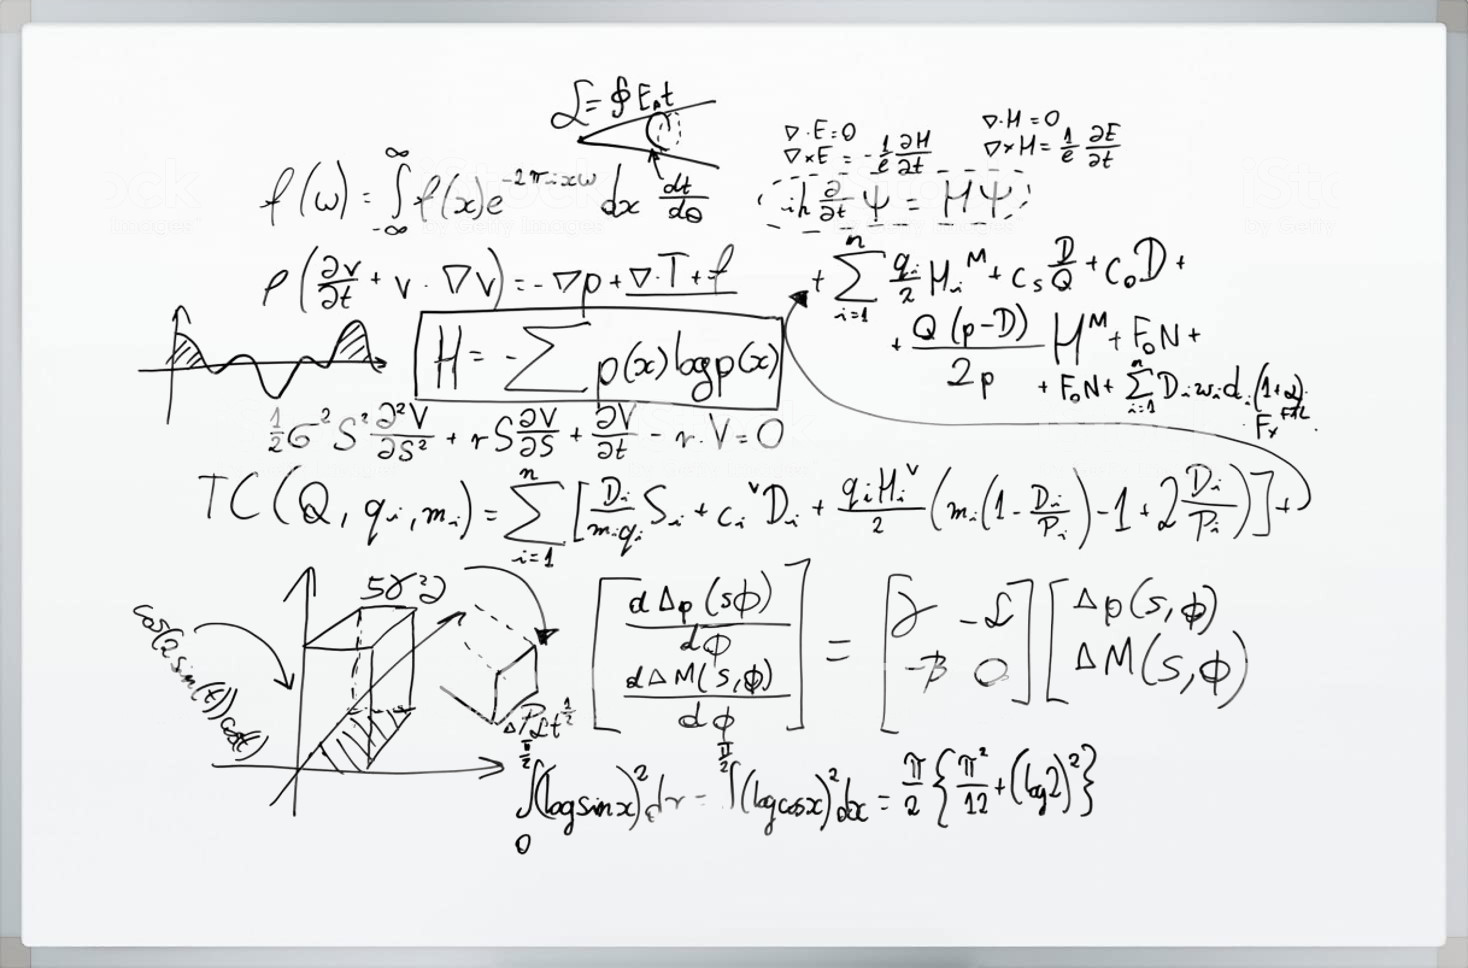 ℒ = ∮ E₀t
∇·E=0 ∇·H=0
∇×E = -1/e ∂H/∂t ∇×H = 1/e ∂E/∂t
f(ω) = ∫_{-∞}^{∞} f(x)e^{-2πixω} dx dt/dθ
iħ ∂/∂t Ψ = HΨ
ρ(∂v/∂t + v·∇v) = -∇p + ∇·T + f
+ ∑_{i=1}^{n} q_i/2 H_i^M + c_s D/Q + c_0 D +
+ Q(p-D)/2p H^M + F_0N +
+ F_0N + ∑_{i=1}^{n} D_i w_i d_i (1+α)
H = -∑ p(x) log p(x)
1/2 σ² S² ∂²V/∂S² + rS ∂V/∂S + ∂V/∂t - r·V = 0
TC(Q, q_i, m_i) = ∑_{i=1}^{n} [D_i/m_iq_i S_i + c_i^v D_i + q_iH_i^v/2 (m_i(1 - D_i/P_i) - 1 + 2 D_i/P_i)] +
cos(2sin(t))cos(t)
[d Δp(sϕ)/dϕ dΔM(s,ϕ)/dϕ] = [γ -ℒ -β 0] [Δp(s,ϕ) ΔM(s,ϕ)]
∫_0^{π/2} (log sin x)² dx = ∫^{π/2} (log cos x)² dx = π/2 {π²/12 + (log 2)²}